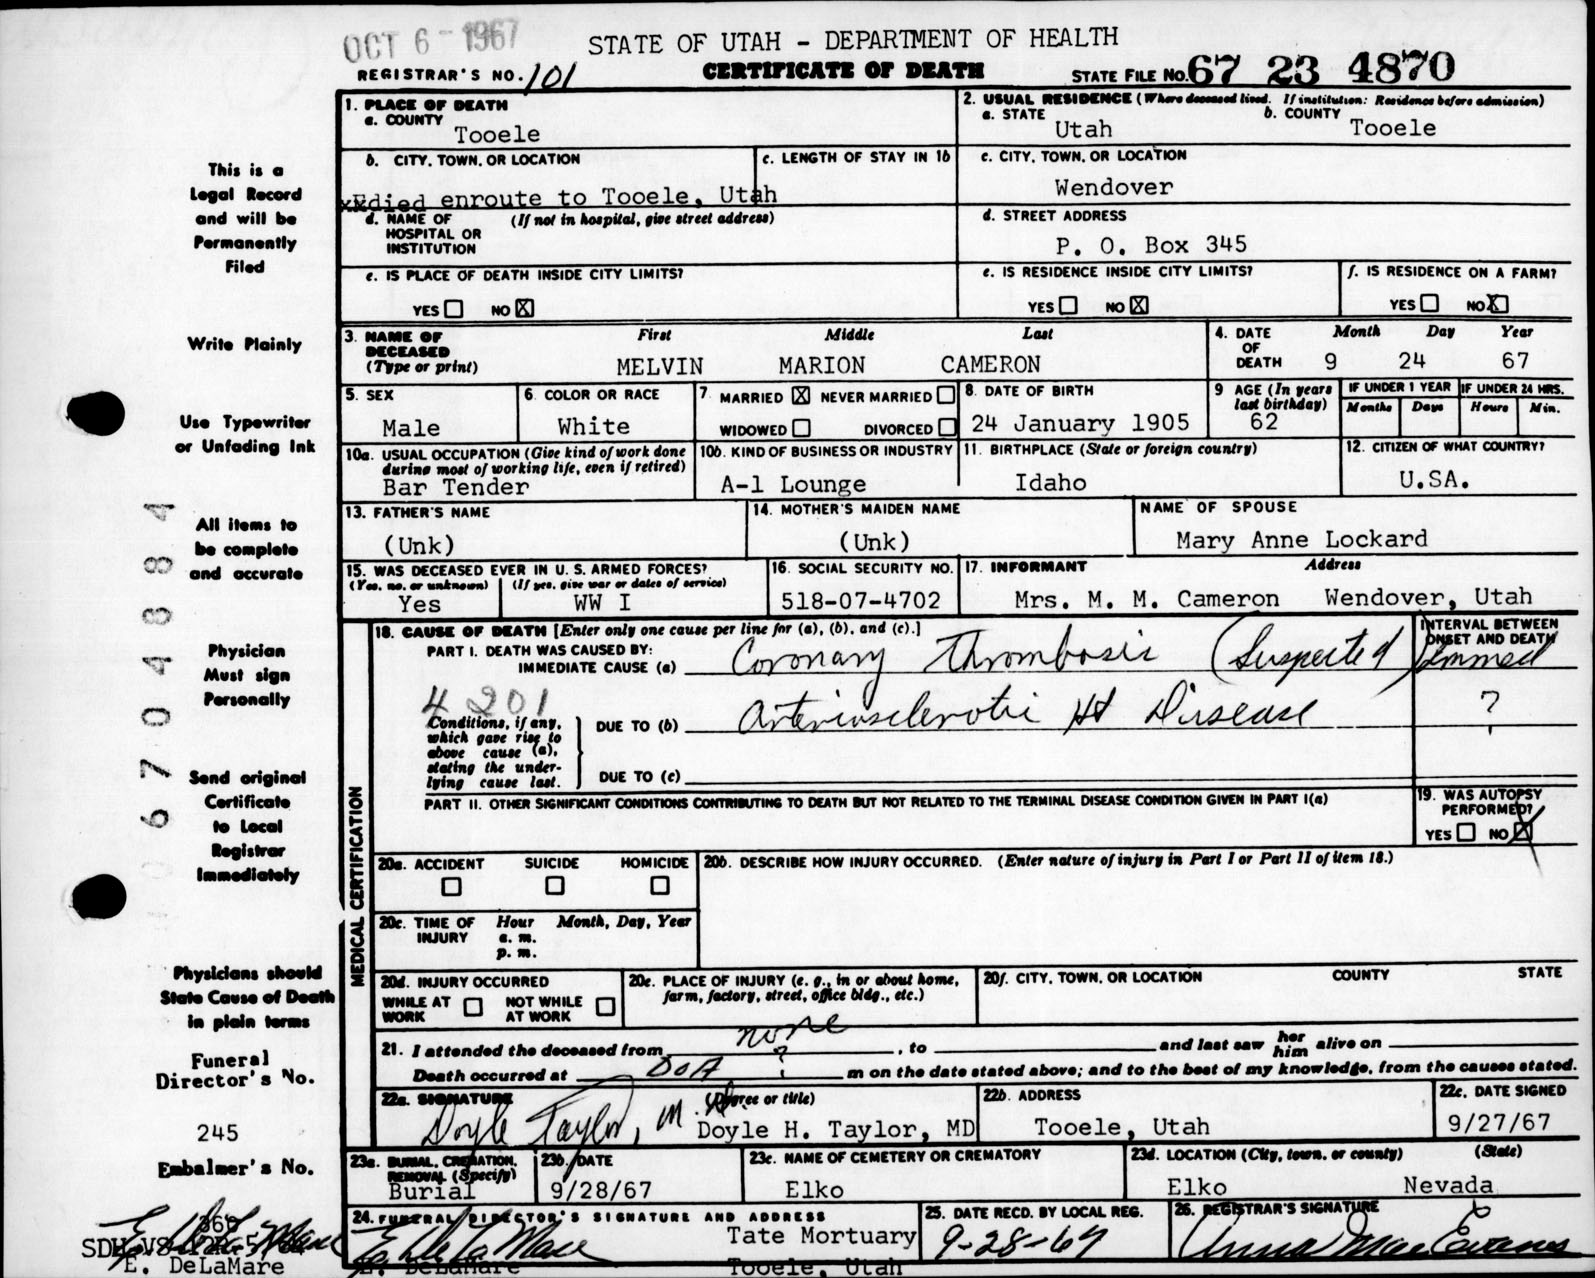 OCT 6 - 1967
STATE OF UTAH - DEPARTMENT OF HEALTH
REGISTRAR'S NO. 101
CERTIFICATE OF DEATH
STATE FILE NO. 67 23 4870
1. PLACE OF DEATH
a. COUNTY
Tooele
2. USUAL RESIDENCE (Where deceased lived. If institution: Residence before admission)
a. STATE
Utah
b. COUNTY
Tooele
b. CITY, TOWN, OR LOCATION
died enroute to Tooele, Utah
c. LENGTH OF STAY IN 1b
c. CITY, TOWN, OR LOCATION
Wendover
d. NAME OF HOSPITAL OR INSTITUTION
(If not in hospital, give street address)
d. STREET ADDRESS
P. O. Box 345
e. IS PLACE OF DEATH INSIDE CITY LIMITS?
YES NO X
e. IS RESIDENCE INSIDE CITY LIMITS?
YES NO X
f. IS RESIDENCE ON A FARM?
YES NO X
3. NAME OF DECEASED
(Type or print)
First Middle Last
MELVIN MARION CAMERON
4. DATE OF DEATH
Month Day Year
9 24 67
5. SEX
Male
6. COLOR OR RACE
White
7. MARRIED X NEVER MARRIED
WIDOWED DIVORCED
8. DATE OF BIRTH
24 January 1905
9 AGE (In years last birthday)
62
IF UNDER 1 YEAR
Months Days
IF UNDER 24 HRS.
Hours Min.
10a. USUAL OCCUPATION (Give kind of work done during most of working life, even if retired)
Bar Tender
10b. KIND OF BUSINESS OR INDUSTRY
A-1 Lounge
11. BIRTHPLACE (State or foreign country)
Idaho
12. CITIZEN OF WHAT COUNTRY?
U.SA.
13. FATHER'S NAME
(Unk)
14. MOTHER'S MAIDEN NAME
(Unk)
NAME OF SPOUSE
Mary Anne Lockard
15. WAS DECEASED EVER IN U. S. ARMED FORCES?
(Yes, no, or unknown) (If yes, give war or dates of service)
Yes WW I
16. SOCIAL SECURITY NO.
518-07-4702
17. INFORMANT Address
Mrs. M. M. Cameron Wendover, Utah
MEDICAL CERTIFICATION
18. CAUSE OF DEATH [Enter only one cause per line for (a), (b), and (c).]
PART I. DEATH WAS CAUSED BY:
IMMEDIATE CAUSE (a) Coronary Thrombosis (Suspected)
INTERVAL BETWEEN ONSET AND DEATH
Immed
4 201
Conditions, if any, which gave rise to above cause (a), stating the underlying cause last.
DUE TO (b) Arteriosclerotic Ht Disease ?
DUE TO (c)
PART II. OTHER SIGNIFICANT CONDITIONS CONTRIBUTING TO DEATH BUT NOT RELATED TO THE TERMINAL DISEASE CONDITION GIVEN IN PART I(a)
19. WAS AUTOPSY PERFORMED?
YES NO X
20a. ACCIDENT SUICIDE HOMICIDE
20b. DESCRIBE HOW INJURY OCCURRED. (Enter nature of injury in Part I or Part II of item 18.)
20c. TIME OF INJURY
Hour Month, Day, Year
a. m.
p. m.
20d. INJURY OCCURRED
WHILE AT WORK NOT WHILE AT WORK
20e. PLACE OF INJURY (e. g., in or about home, farm, factory, street, office bldg., etc.)
20f. CITY, TOWN, OR LOCATION COUNTY STATE
21. I attended the deceased from none, to and last saw her him alive on
Death occurred at DOA ? m on the date stated above; and to the best of my knowledge, from the causes stated.
22a. SIGNATURE (Degree or title)
Doyle Taylor, M.D.
Doyle H. Taylor, MD
22b. ADDRESS
Tooele, Utah
22c. DATE SIGNED
9/27/67
23a. BURIAL, CREMATION, REMOVAL (Specify)
Burial
23b. DATE
9/28/67
23c. NAME OF CEMETERY OR CREMATORY
Elko
23d. LOCATION (City, town, or county) (State)
Elko Nevada
24. FUNERAL DIRECTOR'S SIGNATURE AND ADDRESS
E. DeLaMare
Tate Mortuary
E. DeLaMare
Tooele, Utah
25. DATE RECD. BY LOCAL REG.
9-28-67
26. REGISTRAR'S SIGNATURE
Anna Mae Evans
This is a
Legal Record
and will be
Permanently
Filed
Write Plainly
Use Typewriter
or Unfading Ink
All items to
be complete
and accurate
Physician
Must sign
Personally
Send original
Certificate
to Local
Registrar
Immediately
Physicians should
State Cause of Death
in plain terms
Funeral
Director's No.
245
Embalmer's No.
E. DeLaMare
06704884